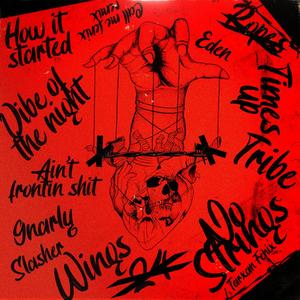 How it
started
Call me fenix
remix
Eden
Ropes
Times
up
Tribe
Vibe of
the night
Ain't
frontin shit
Gnarly
Slasher
Wings
No
Strings
Tarkan Fenix